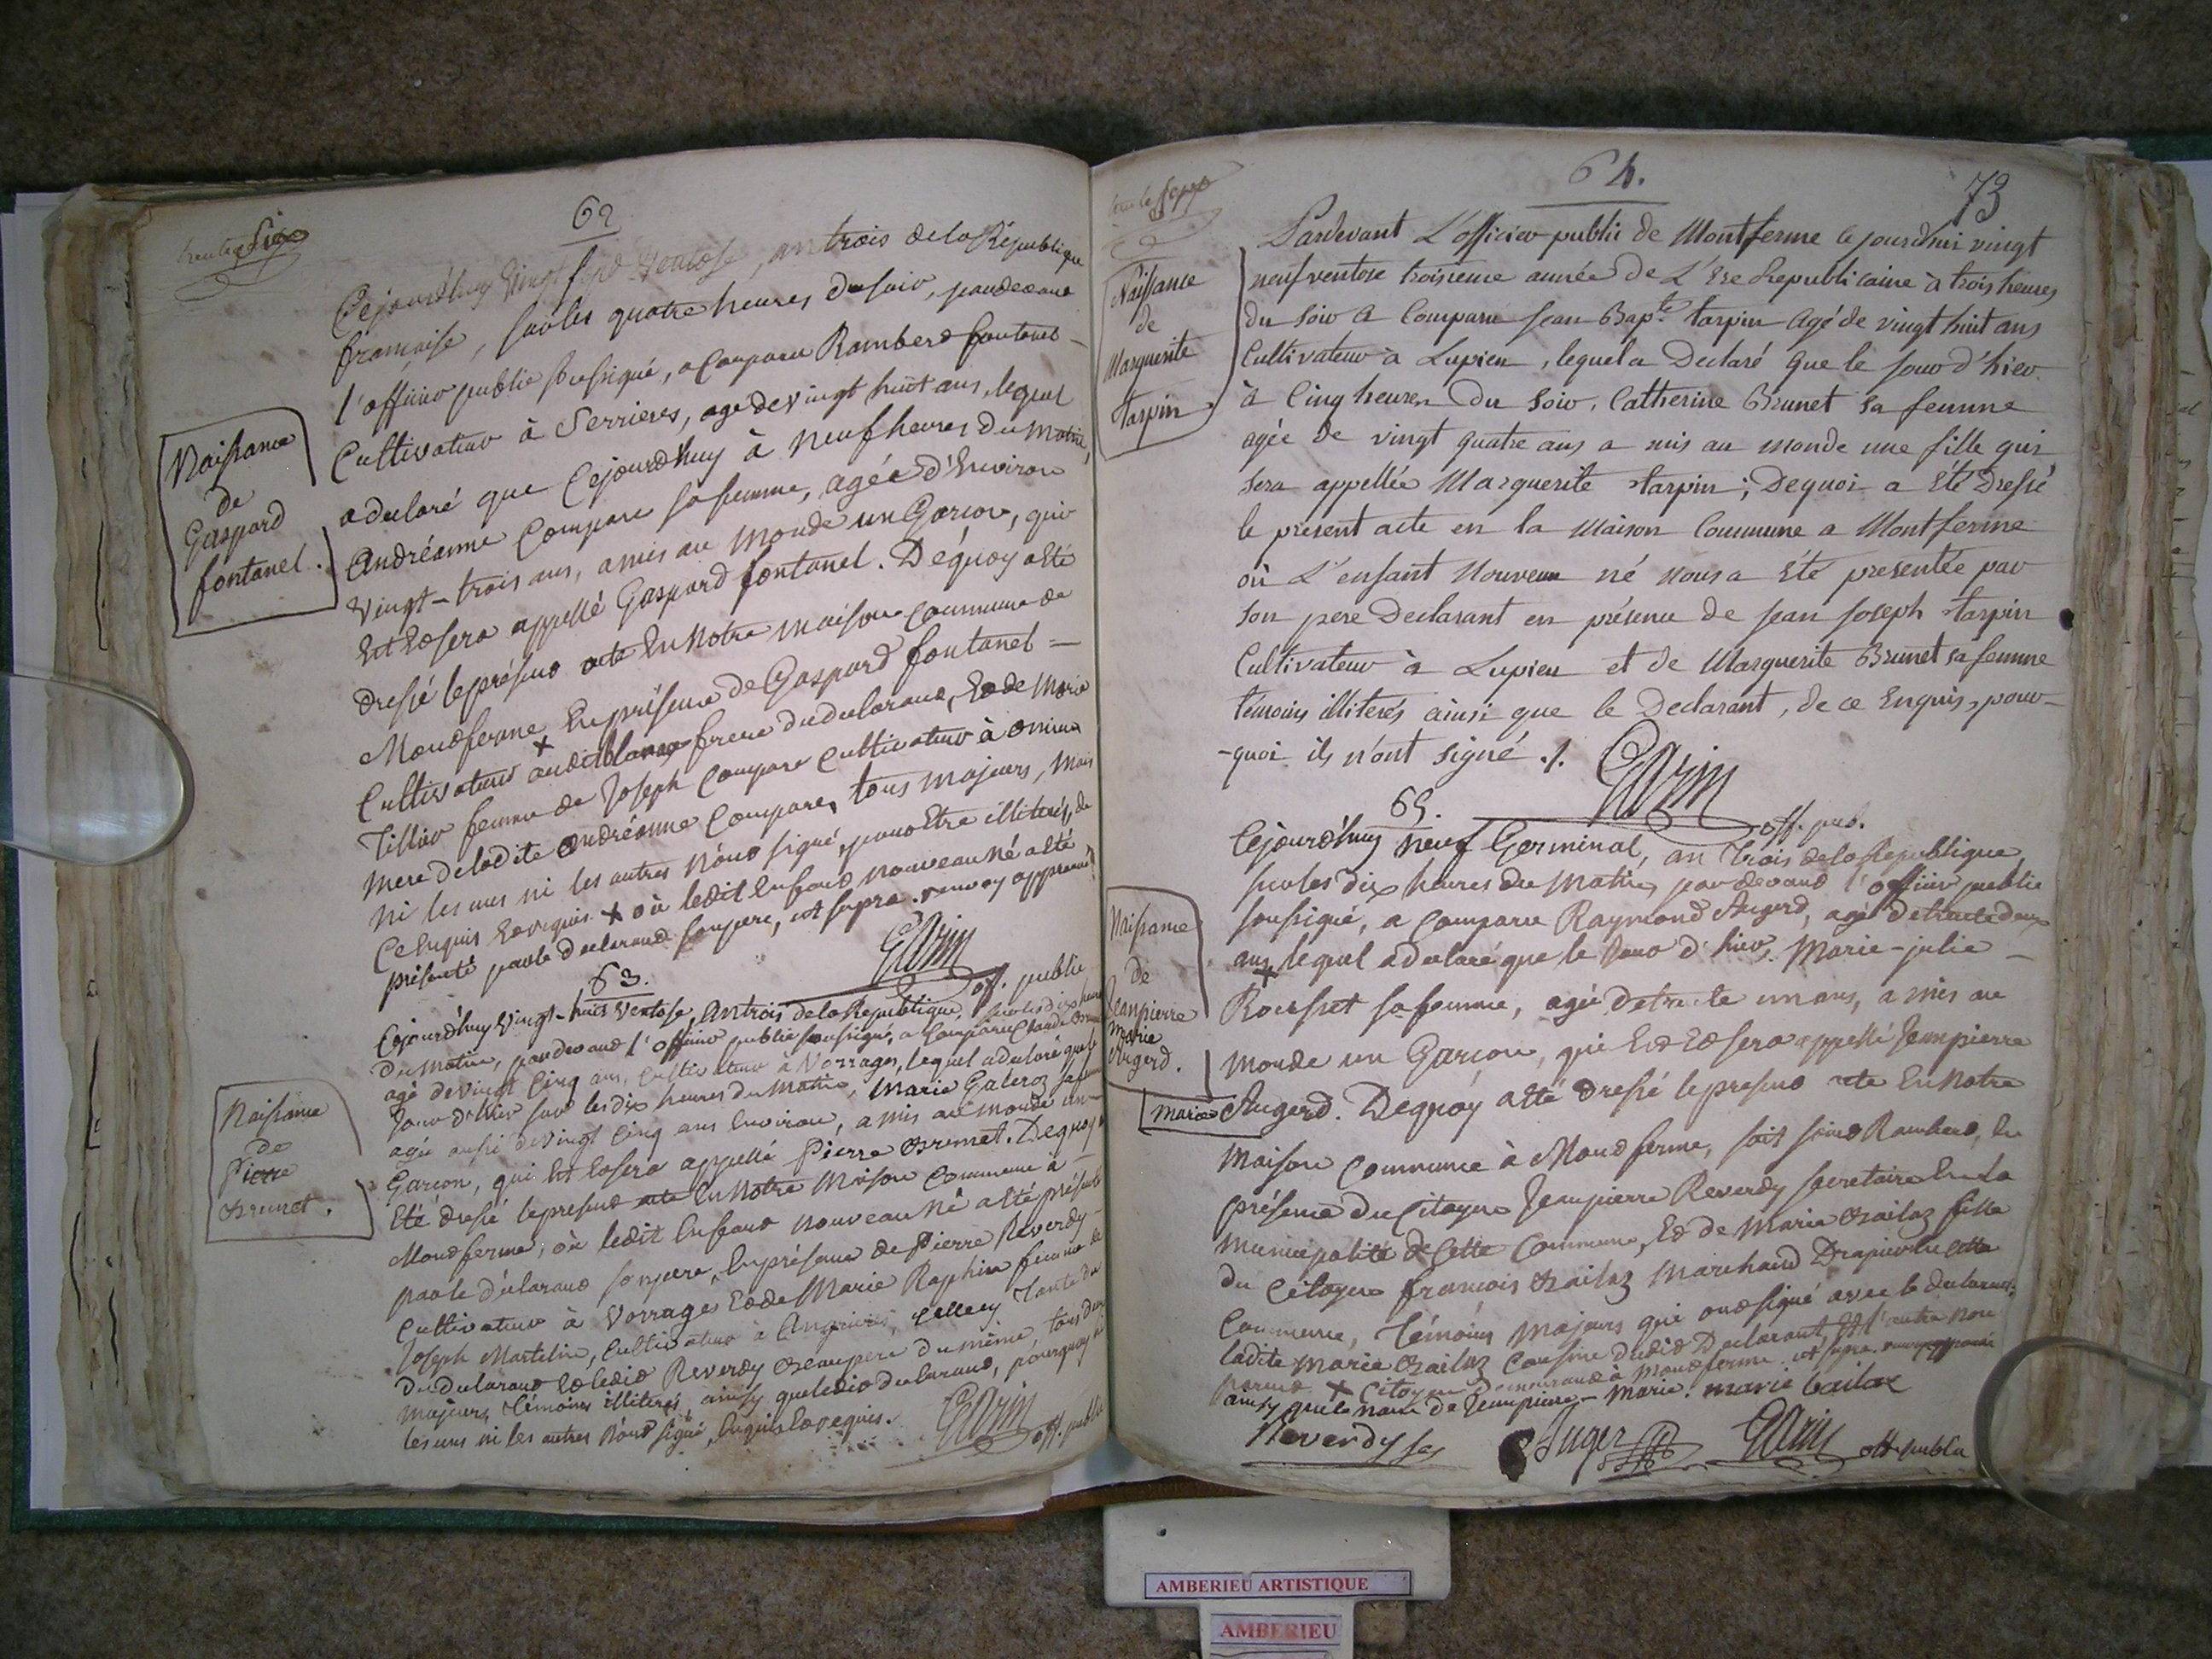 62
Cejourd'huy Vingt sept Ventose, an trois de la République
francaise, sur les quatre heures du soir, pardevant
l'officier public soussigné, a comparu Rambert fontanel
Cultivateur à Serrieres, agé de vingt huit ans, lequel
a déclaré que Cejourd'huy à neuf heures du matin,
Andréanne Compare sa femme, agée d'Environ
Vingt-trois ans, a mis au monde un Garcon, qui
Est Et sera appellé Gaspard fontanel. Dequoy a Eté
dressé le présent acte En Notre maison Commune de
Montferme En présence de Gaspard fontanel
Cultivateur audit frere du declarant, Et de Marie
Tillier femme de Joseph Compare Cultivateur à
mere de ladite Andréanne Compare, tous majeurs, mais
Ni les uns ni les autres N'ont signé, pour Etre illiterés, de
Ce Enquis Et requis X où ledit Enfant nouveau né a Eté
présenté par le declarant son pere, ut supra. renvoy approuvé
Naissance
de
Gaspard
fontanel.
off. public
63.
Cejourd'huy Vingt-huit Ventose, an trois de la République, sur les dix heures
du matin, pardevant l'officier public soussigné, a Comparu Claude
agé de vingt Cinq ans, Cultivateur à Vorrages, lequel a declaré que le
Jour d'hier sur les dix heures du matin, Marie Galeroz sa femme
agée aussi de Vingt Cinq ans Environ, a mis au monde un
Garcon, qui Est Et sera appellé Pierre Brunet. Dequoy a
Eté dressé le present acte En Notre Maison Commune à
Montferme, où ledit Enfant nouveau Né a Eté présenté
par le déclarant son pere, En présence de Pierre Reverdy
Cultivateur à Vorrages Et de Marie Raphin femme de
Joseph Martelin, Cultivateur à Tante du
du declarant Et ledit Reverdy Beaupere du même, tous deux
majeurs, Témoins illiterés, ainsy que ledit declarant, pourquoy ni
les uns ni les autres N'ont signé, Enquis Et requis.
Naissance
de
Pierre
Brunet.
off. public
64.
73
Pardevant L'officier public de Montferme Cejourdhui vingt
neuf ventose troisieme année de L'Ere Republicaine à trois heures
du soir a Comparu Jean Bapte. tarpin Agé de vingt huit ans
Cultivateur à Lupieu, lequel a Declaré que le jour d'hier
à Cinq heures du soir, Catherine Brunet sa femme
agée de vingt quatre ans a mis au monde une fille qui
sera appellée Marguerite tarpin; Dequoi a Eté Dressé
le present acte en la Maison Commune a Montferme
où L'enfant Nouveau né nous a Eté presentée par
son pere Declarant en présence de Jean Joseph tarpin
Cultivateur à Lupieu et de Marguerite Brunet sa femme
témoins illiterés ainsi que le Declarant, de ce Enquis, pour-
-quoi ils n'ont signé ./.
Naissance
de
Marguerite
tarpin
off. pub.
65.
Cejourd'huy neuf Germinal, an Trois de la Republique,
sur les dix heures du Matin, pardevant l'officier public
soussigné, a comparu Raymond Augerd, agé de trente deux
ans X lequel a declaré que le Jour d'hier Marie-julie
Rousset sa femme, agée de trente un ans, a mis au
Monde un Garcon, qui Est Et sera appellé Jeanpierre
marie Augerd. Dequoy a Eté dressé le present acte En Notre
Maison Commune à Montferme, soit saint Rambert, En
présence du Citoyen Jeanpierre Reverdy secretaire En la
municipalité de Cette Commune, Et de Marie Bailaz fille
du Citoyen francois Bailaz Marchand Drapier En cette
Commune, Témoins Majeurs qui ont signé avec le declarant;
ladite Marie Bailaz Cousine dudit Declarant, Et l'autre non
parent X Citoyen demeurant à Montferme ut supra. renvoy approuvé
ainsy que le nom de Jeanpierre - Marie. marie bailaz
Naissance
de
Jeanpierre
Marie
Augerd.
Reverdy
Auger
off. public
AMBERIEU ARTISTIQUE
AMBERIEU